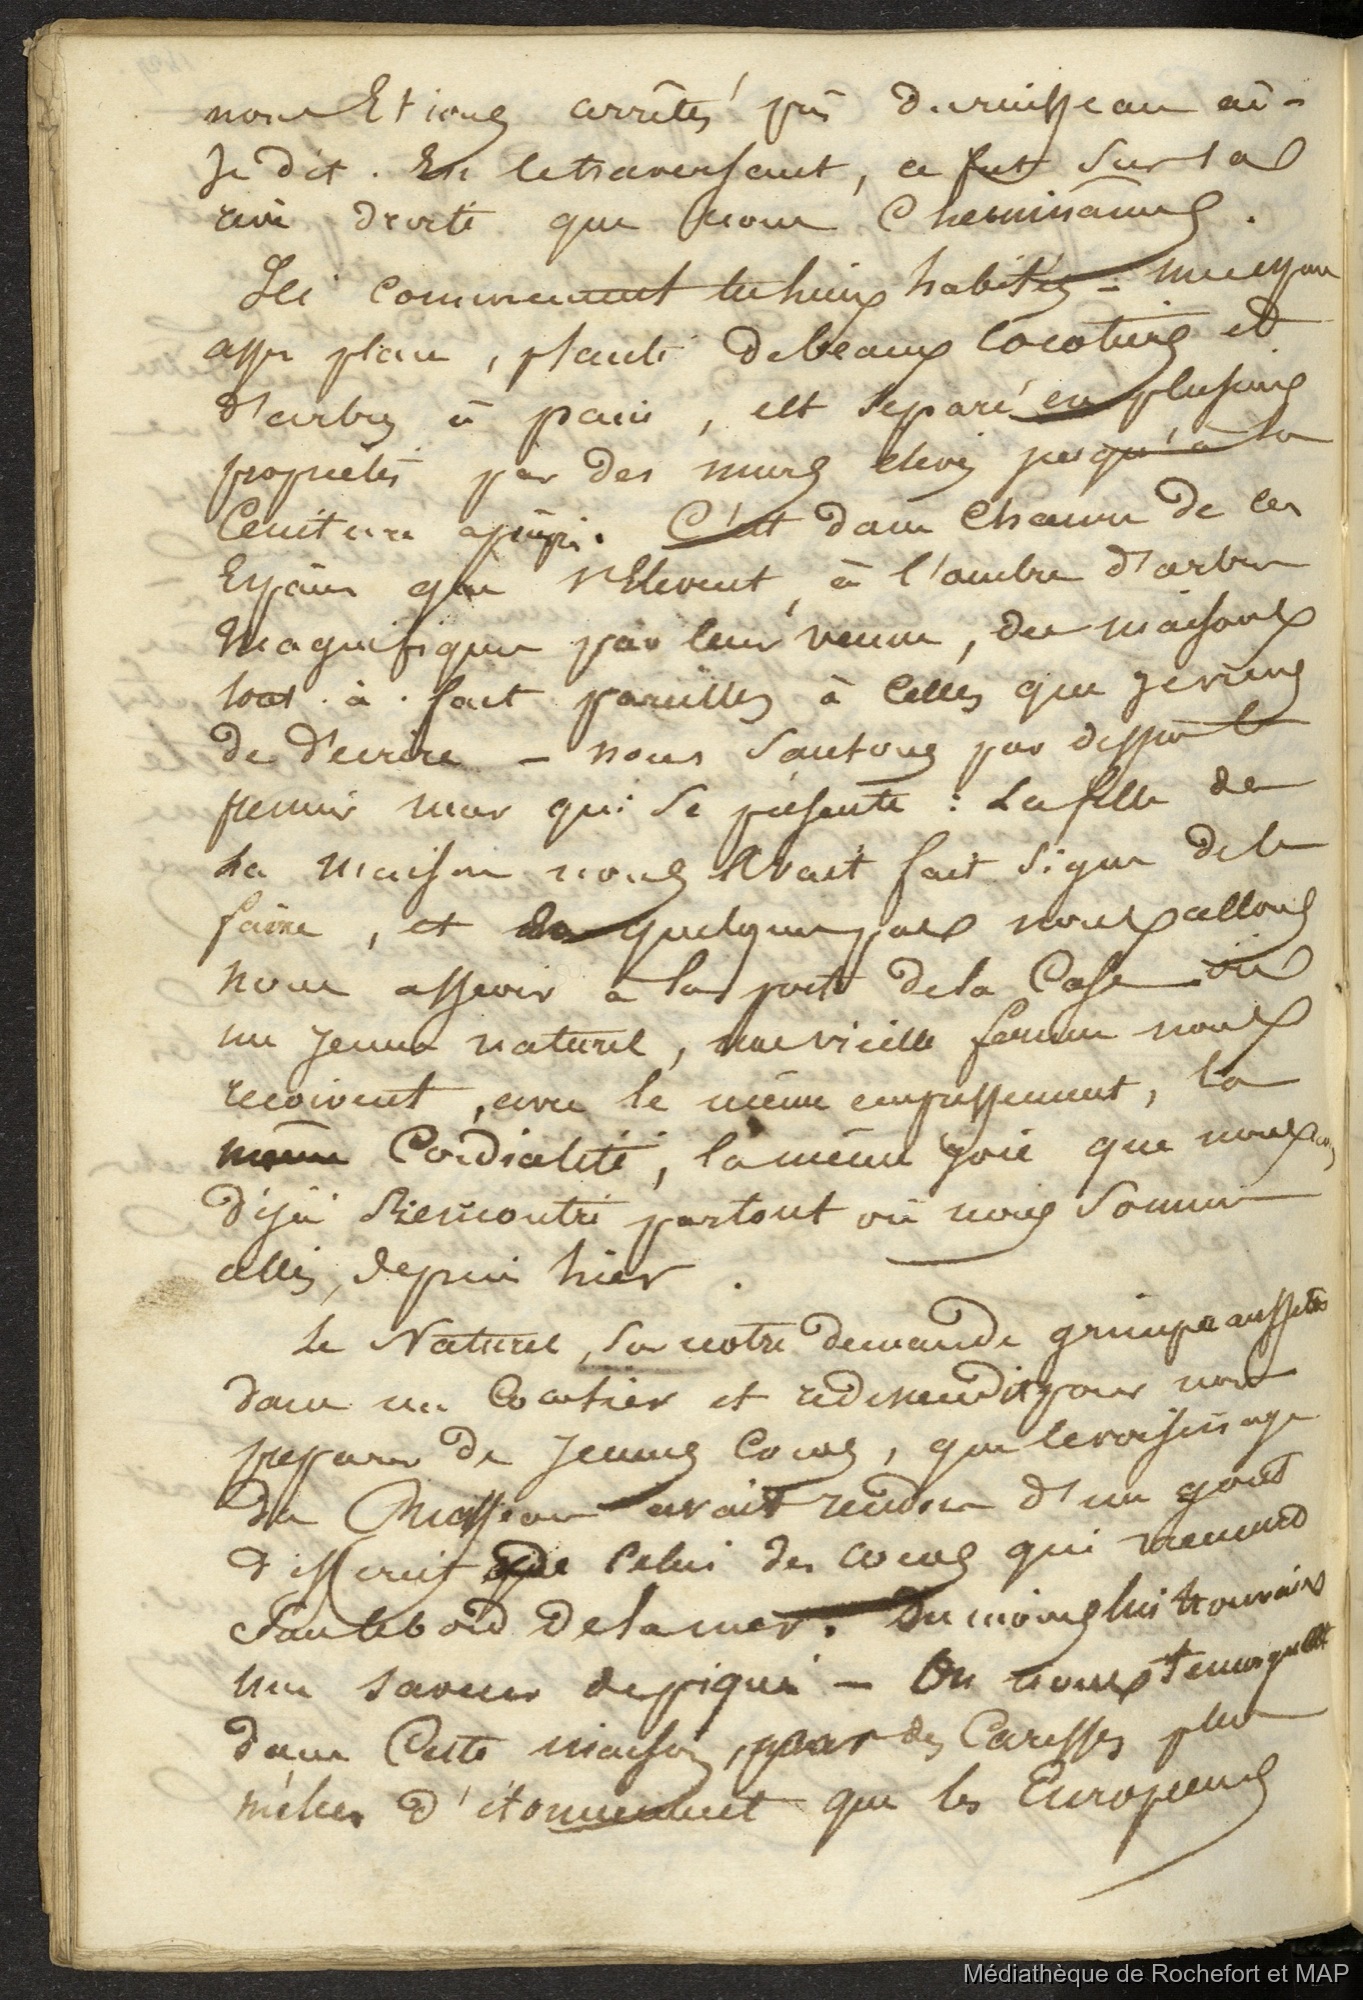 nous Etions arrêtés près du ruisseau où-
Je dit. En le traversant, ce fut sur la
rive droite que nous Cheminâmes.
Ici commencent les lieux habités - un espace
assez plane, planté de beaux Cocotiers et
d'arbres à pain, est séparé en plusieurs
propriétés par des murs élevés jusqu'à la
Ceinture. C'est dans Chacun de ces
Espaces que s'Elevent, à l'ombre d'arbres
Magnifiques par leur venue, des maisons
tout. à. fait pareilles à Celles que je viens
de d'ecrire - nous sautons par dessus le
premier mur qui se présente: La fille de
La maison nous Avait fait signe de le
faire, et en quelques pas nous allons
nous asseoir à la porte de la Case où
un Jeune naturel, une vieille femme nous
recoivent, avec le même empressement, la
même Cordialité, la même joie que nous
déjà Rencontré partout où nous sommes
allés, depuis hier.
Le Naturel, sur notre demande grimpe aussitôt
dans un Cocotier et redescendit pour nous
preparer de Jeunes Cocos, que le voisinage
du Ruisseau avait rendu d'un gout
different de celui des cocos qui viennent
sur le bord de la mer. Du moins lui trouvais
une saveur de piqué - On nous temoignait
dans Cette maison, par des Caresses plus
mêlées d'étonnement que les Européens
Médiathèque de Rochefort et MAP